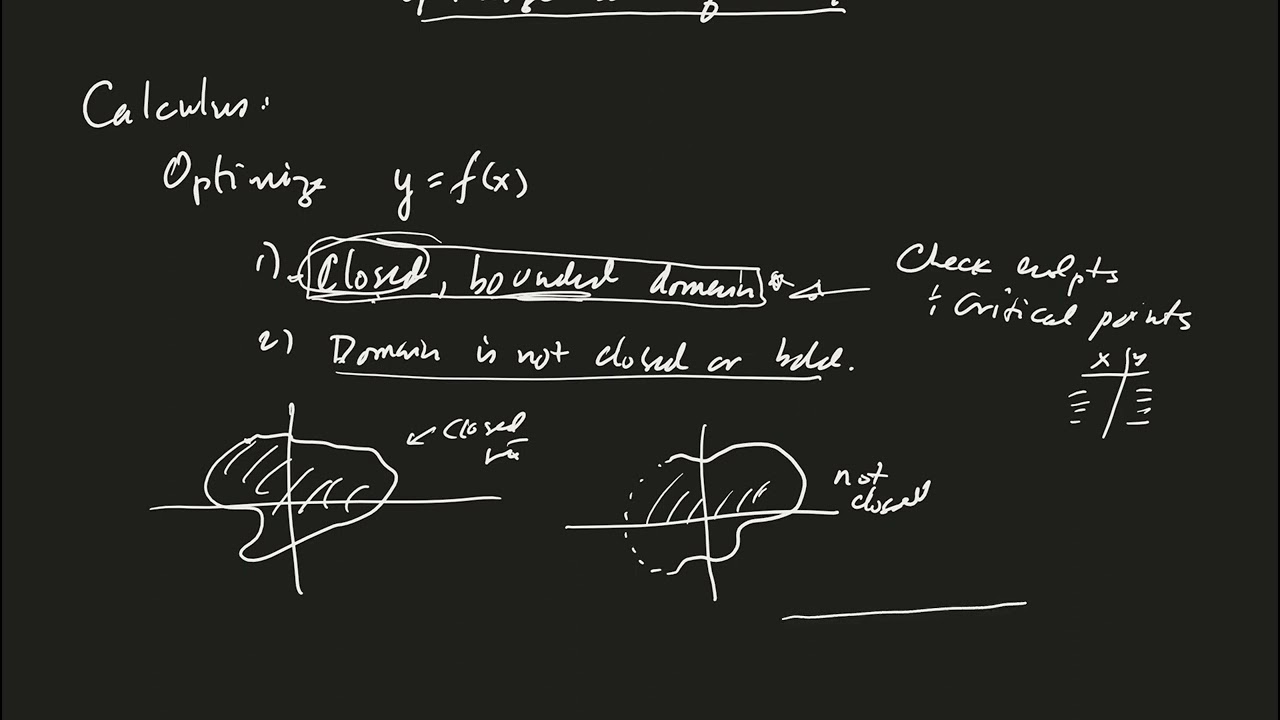 Calculus:
Optimize y = f(x)
1) Closed, bounded domain
Check endpts
& Critical points
x | y
2) Domain is not closed or bdd.
closed
not
closed